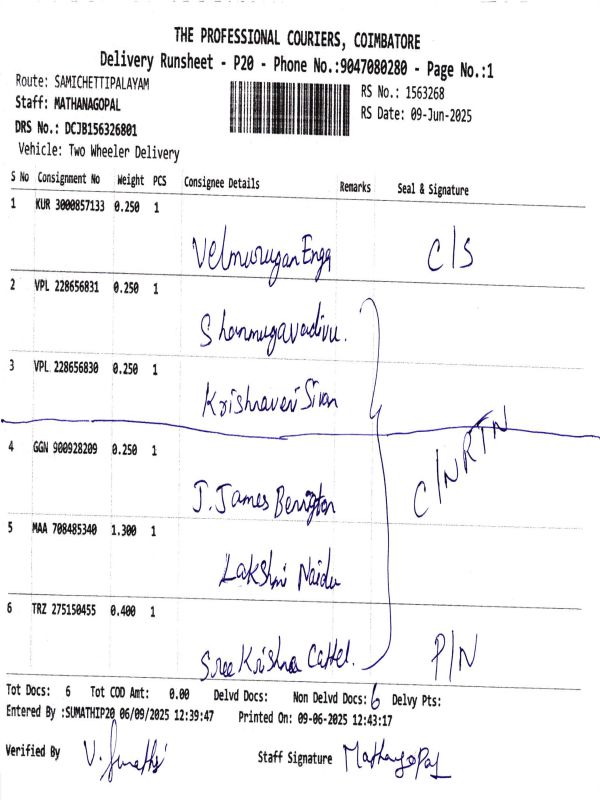 THE PROFESSIONAL COURIERS, COIMBATORE
Delivery Runsheet - P20 - Phone No.:9047080280 - Page No.:1
Route: SAMICHETTIPALAYAM
Staff: MATHANAGOPAL
DRS No.: DCJB156326801
Vehicle: Two Wheeler Delivery
RS No.: 1563268
RS Date: 09-Jun-2025
S No Consignment No Weight PCS Consignee Details Remarks Seal & Signature
1 KUR 3000857133 0.250 1
Velmurugan Engg C/S
2 VPL 228656831 0.250 1
Shanmugavadivu.
3 VPL 228656830 0.250 1
Krishnaveni Sivan
4 GGN 900928209 0.250 1
C/NRTN
J. James Berington
5 MAA 708485340 1.300 1
Lakshmi Naidu
6 TRZ 275150455 0.400 1
Sree Krishna Cattel. P/N
Tot Docs: 6 Tot COD Amt: 0.00 Delvd Docs: Non Delvd Docs: 6 Delvy Pts:
Entered By :SUMATHIP20 06/09/2025 12:39:47 Printed On: 09-06-2025 12:43:17
Verified By V. Sumathi Staff Signature Mathangopal